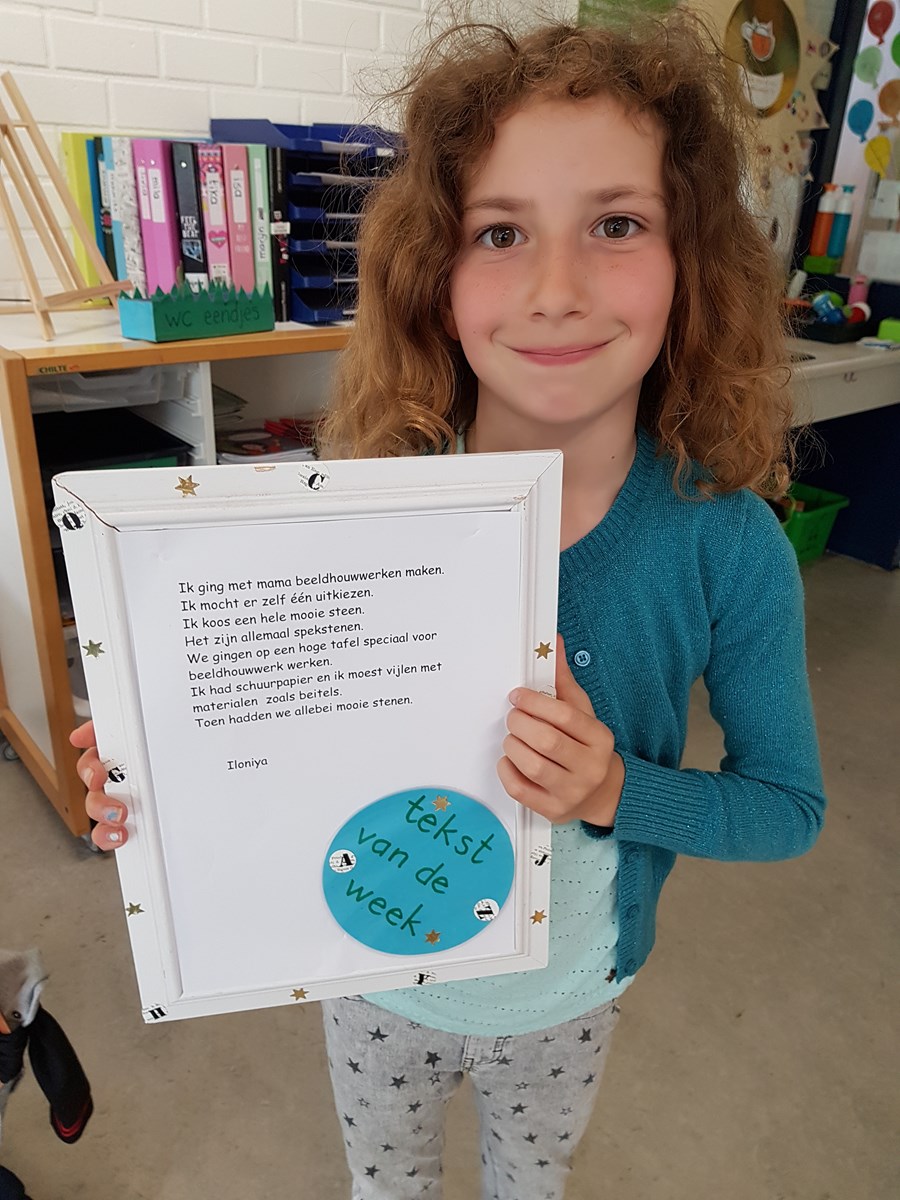 Ik ging met mama beeldhouwwerken maken.
Ik mocht er zelf één uitkiezen.
Ik koos een hele mooie steen.
Het zijn allemaal spekstenen.
We gingen op een hoge tafel speciaal voor
beeldhouwwerk werken.
Ik had schuurpapier en ik moest vijlen met
materialen zoals beitels.
Toen hadden we allebei mooie stenen.
Iloniya
tekst
van de
week
A
Z
Q
C
G
J
H
F
WC eendjes
SCHILTE
mila
tika
isa